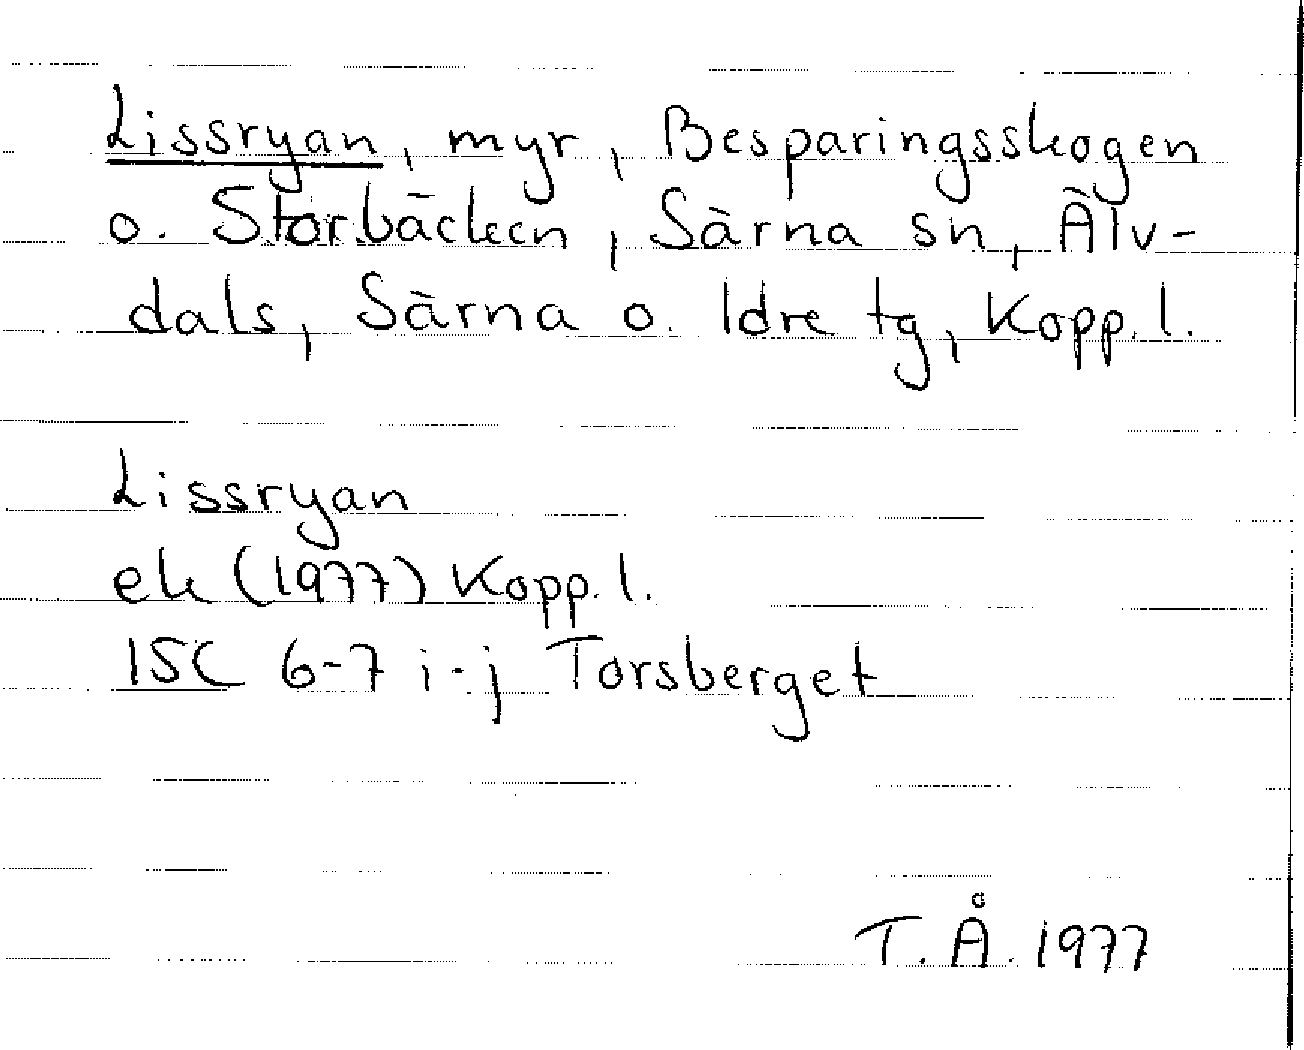 Lissryan, myr, Besparingsskogen
o. Storbäcken, Särna sn, Älv-
dals, Särna o. Idre tg, Kopp. l.
Lissryan
ek (1977) Kopp. l.
15C 6-7 i-j Torsberget
T. Å. 1977